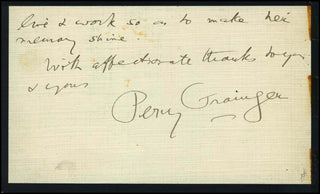 live & work so as to make her
memory shine.
With affectionate thanks to you
& yours
Percy Grainger